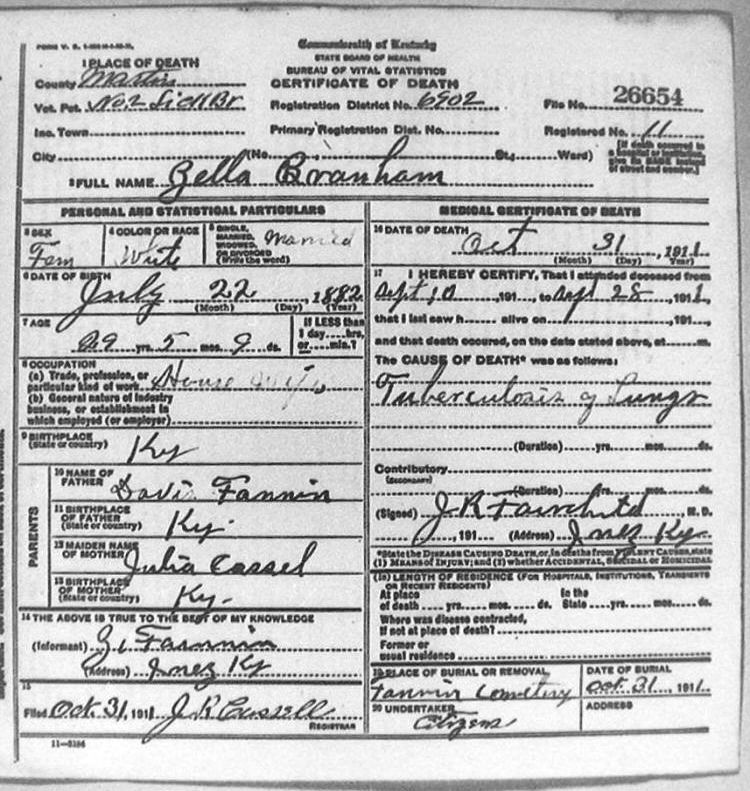 FORM V. S.
Commonwealth of Kentucky
STATE BOARD OF HEALTH
BUREAU OF VITAL STATISTICS
CERTIFICATE OF DEATH
1 PLACE OF DEATH
County Martin
Vot. Pct. No. 2
Registration District No. 6902
File No. 26654
Inc. Town
Primary Registration Dist. No.
Registered No. 11
City (No. St.; Ward)
[If death occurred in a hospital or institution, give its NAME instead of street and number.]
2 FULL NAME Zella Branham
PERSONAL AND STATISTICAL PARTICULARS
3 SEX Fem
4 COLOR OR RACE White
5 SINGLE, MARRIED, WIDOWED, OR DIVORCED (Write the word) Married
6 DATE OF BIRTH July 22, 1882
(Month) (Day) (Year)
7 AGE 29 yrs. 5 mos. 9 ds.
If LESS than 1 day....hrs. or....min.?
8 OCCUPATION
(a) Trade, profession, or particular kind of work House wife
(b) General nature of industry business, or establishment in which employed (or employer)
9 BIRTHPLACE (State or country) Ky
PARENTS
10 NAME OF FATHER Davis Fannin
11 BIRTHPLACE OF FATHER (State or country) Ky.
12 MAIDEN NAME OF MOTHER Julia Cassel
13 BIRTHPLACE OF MOTHER (State or country) Ky.
14 THE ABOVE IS TRUE TO THE BEST OF MY KNOWLEDGE
(Informant) Fannin
(Address) Inez Ky
15
Filed Oct. 31, 1911 J R Cassell
REGISTRAR
11-3184
MEDICAL CERTIFICATE OF DEATH
16 DATE OF DEATH Oct 31, 1911
(Month) (Day) (Year)
17 I HEREBY CERTIFY, That I attended deceased from
Sept 10, 191 , to Sept 28, 1911,
that I last saw h alive on , 191 ,
and that death occured, on the date stated above, at m.
The CAUSE OF DEATH* was as follows:
Tuberculosis of Lungs
(Duration) yrs. mos. ds.
Contributory
(SECONDARY)
(Duration) yrs. mos. ds.
(Signed) J R Fairchild, M. D.
, 191 (Address) Inez Ky.
*State the DISEASE CAUSING DEATH, or, in deaths from VIOLENT CAUSES, state (1) MEANS OF INJURY; and (2) whether ACCIDENTAL, SUICIDAL or HOMICIDAL
(18) LENGTH OF RESIDENCE (FOR HOSPITALS, INSTITUTIONS, TRANSIENTS OR RECENT RESIDENTS)
At place of death yrs. mos. ds. In the State yrs. mos. ds.
Where was disease contracted, If not at place of death?
Former or usual residence
19 PLACE OF BURIAL OR REMOVAL Fannin Cemetery
DATE OF BURIAL Oct. 31, 1911
20 UNDERTAKER Citizens
ADDRESS